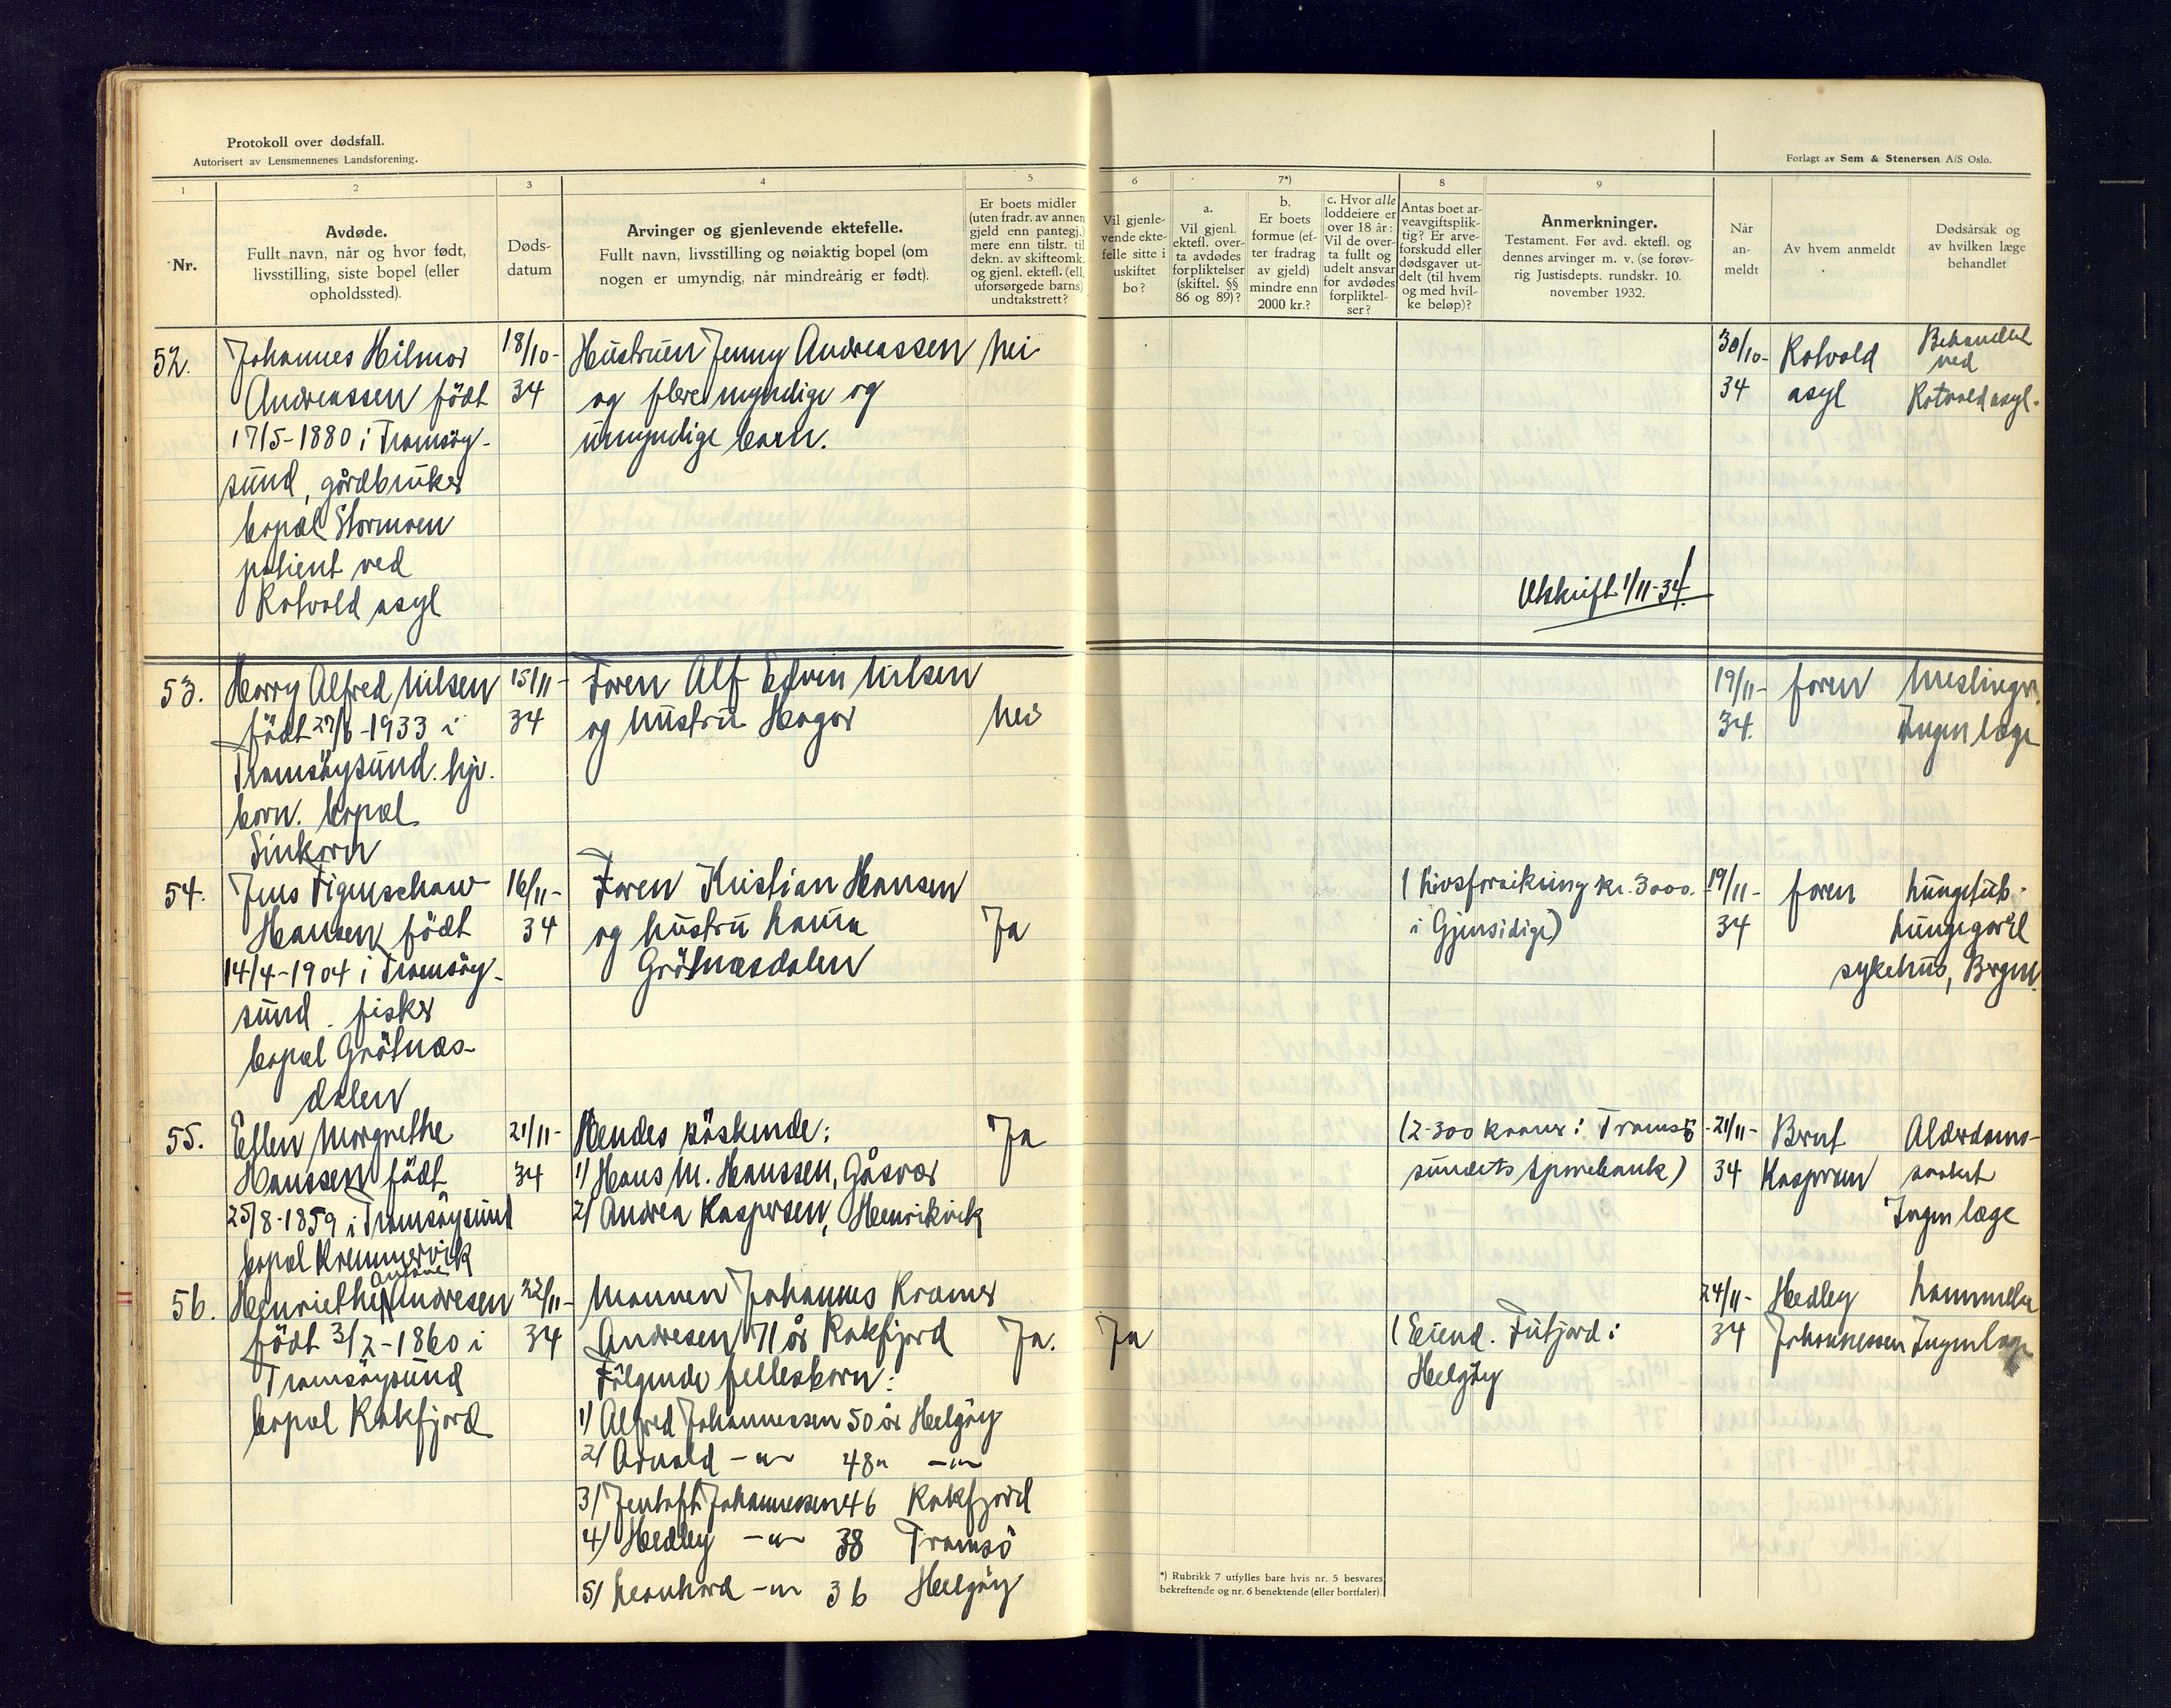 Protokoll over dødsfall.
Autorisert av Lensmennenes Landsforening.
Forlagt av Sem & Stenersen A/S Oslo.
1
2
3
4
5
6
7*)
8
9
Nr.
Avdøde.
Fullt navn, når og hvor født,
livsstilling, siste bopel (eller
opholdssted).
Døds-
datum
Arvinger og gjenlevende ektefelle.
Fullt navn, livsstilling og nøiaktig bopel (om
nogen er umyndig, når mindreårig er født).
Er boets midler
(uten fradr. av annen
gjeld enn pantegj.)
mere enn tilstr. til
dekn. av skifteomk.
og gjenl. ektefl. (ell.
uforsørgede barns)
undtakstrett?
Vil gjenle-
vende ekte-
felle sitte i
uskiftet
bo?
a.
Vil gjenl.
ektefl. over-
ta avdødes
forpliktelser
(skiftel. §§
86 og 89)?
b.
Er boets
formue (ef-
ter fradrag
av gjeld)
mindre enn
2000 kr.?
c. Hvor alle
loddeiere er
over 18 år:
Vil de over-
ta fullt og
udelt ansvar
for avdødes
forpliktel-
ser?
Antas boet ar-
veavgiftsplik-
tig? Er arve-
forskudd eller
dødsgaver ut-
delt (til hvem
og med hvil-
ke beløp)?
Anmerkninger.
Testament. Før avd. ektefl. og
dennes arvinger m. v. (se forøv-
rig Justisdepts. rundskr. 10.
november 1932.
Når
an-
meldt
Av hvem anmeldt
Dødsårsak og
av hvilken læge
behandlet
52.
Johannes Hilmar
Andreassen født
17/5-1880 i Tromsöy-
sund, gårdbruker
bopæl Stormoen
patient ved
Rotvold asyl
18/10-
34
Hustruen Jenny Andreassen
og flere myndige og
umyndige barn.
Nei
Utskrift 1/11-34.
30/10-
34
Rotvold
asyl
Behandlet
ved
Rotvold asyl.
53.
Harry Alfred Nilsen
født 27/6-1933 i
Tromsöysund. hjv.
barn. bopæl
Sinkorn
15/11-
34
Foren Alf Edvin Nilsen
og hustru Hagar
Nei
19/11-
34.
foren
Meslinger.
Ingen læge
54.
Jens Figenschaw
Hansen født
14/4-1904 i Tromsöy-
sund. fisker
bopæl Grötnæs-
dalen
16/11-
34
Foren Kristian Hansen
og hustru Laura
Grötnæsdalen
Ja
(Livsforsikring kr. 3000.
i Gjensidige)
19/11-
34
foren
Lungetub.
sykehus, Bergen.
55.
Ellen Margrethe
Hanssen født
25/8-1859 i Tromsöysund
bopæl Kræmmervik
21/11-
34
Hendes söskende:
1) Hans M. Hanssen, Gåsvær
2) Andrea Kaspersen, Henrikvik
Ja
(2-300 kroner i Tromsö
sundets Sparebank)
21/11-
34
Bernt
Kaspersen
Alderdoms-
svakhet
Ingen læge
56.
Henriethe Andresen
født 3/2-1860 i
Tromsöysund
bopæl Kakfjord
22/11-
34
Mannen Johannes Kramer
Andresen 71 år Kakfjord
Fölgende fellesbarn:
1) Alfred Johannessen 50 år Helgöy
2) Arnold -"- 48 " -"-
3) Jentoft Johannessen 46 Kakfjord
4) Hedley -"- 38 Tromsö
5) Leonhard -"- 36 Helgöy
Ja.
Ja
(Eiend. Futfjord i
Helgöy
24/11-
34
Hedley
Johannessen
Lammelse
Ingen læge
*) Rubrikk 7 utfylles bare hvis nr. 5 besvares
bekreftende og nr. 6 benektende (eller bortfaler).